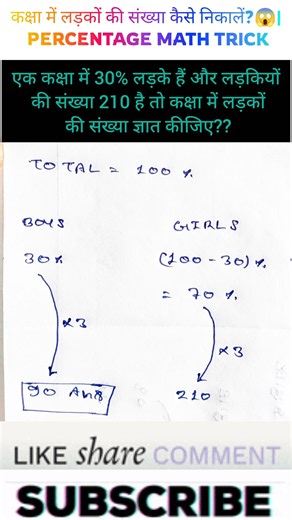 कक्षा में लड़कों की संख्या कैसे निकालें?😱|
PERCENTAGE MATH TRICK
एक कक्षा में 30% लड़के हैं और लड़कियों
की संख्या 210 है तो कक्षा में लड़कों
की संख्या ज्ञात कीजिए??
TOTAL = 100 %
BOYS
GIRLS
30%
(100-30)%
= 70 %
x3
x3
90 Ans
210
LIKE share COMMENT
SUBSCRIBE